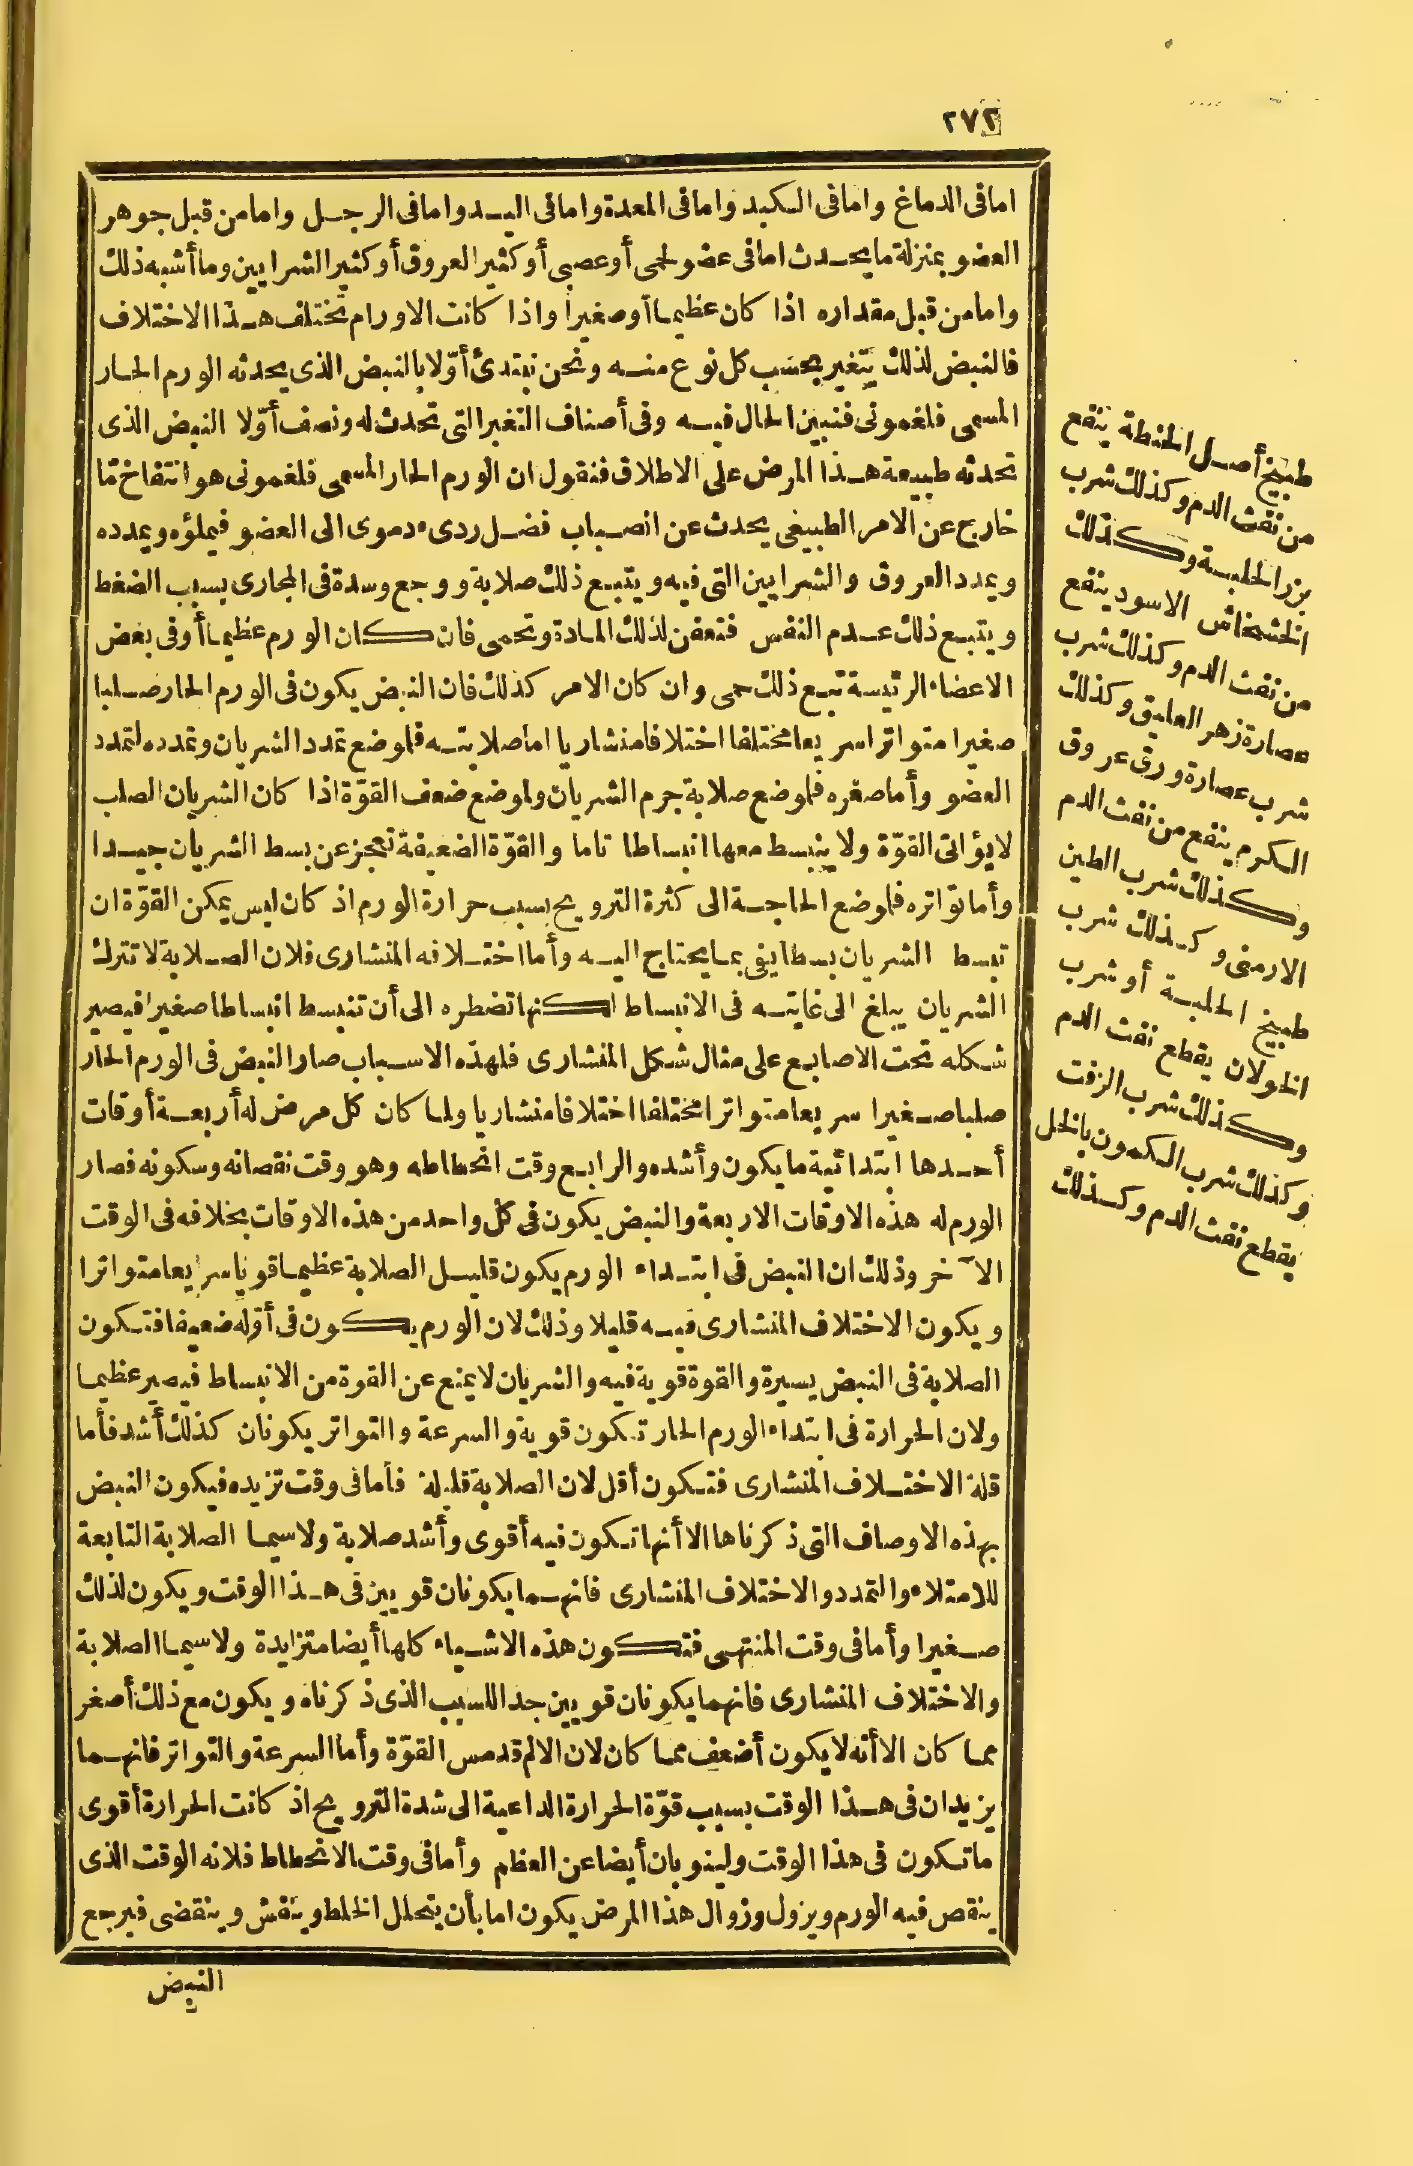 ٢٧٢
اما فى الدماغ واما فى الكبد واما فى المعدة واما فى اليد واما فى الرجل واما من قبل جوهر
العضو بمنزلة ما يحدث اما فى عضو لحمى أو عصبى أو كثير العروق أو كثير الشرايين وما أشبه ذلك
واما من قبل مقداره اذا كان عظيما أو صغيرا واذا كانت الاورام تختلف هذا الاختلاف
فالنبض لذلك يتغير بحسب كل نوع منه ونحن نبتدئ أوّلا بالنبض الذى يحدثه الورم الحار
المسمى فلغمونى فنبين الحال فيه وفى أصناف التغير التى تحدث له ونصف أوّلا النبض الذى
تحدثه طبيعة هذا المرض على الاطلاق فنقول ان الورم الحار المسمى فلغمونى هو انتفاخ مّا
خارج عن الامر الطبيعى يحدث عن انصباب فضل ردىء دموى الى العضو فيملؤه ويمدده
ويمدد العروق والشرايين التى فيه ويتبع ذلك صلابة ووجع وسدة فى المجارى بسبب الضغط
ويتبع ذلك عدم النفس فتعفن لذلك المادة وتحمى فان كان الورم عظيما أو فى بعض
الاعضاء الرئيسة تبع ذلك حمى وان كان الامر كذلك فان النبض يكون فى الورم الحار صلبا
صغيرا متواترا سريعا مختلفا اختلافا منشاريا اما صلابته فلموضع تمدد الشريان وتمدده لتمدد
العضو وأما صغره فلموضع صلابة جرم الشريان ولموضع ضعف القوّة اذا كان الشريان الصلب
لا يؤاتى القوّة ولا ينبسط معها انبساطا تاما والقوّة الضعيفة تعجز عن بسط الشريان جيدا
وأما تواتره فلموضع الحاجة الى كثرة الترويح بسبب حرارة الورم اذ كان ليس يمكن القوّة ان
تبسط الشريان بسطا يفى بما يحتاج اليه وأما اختلافه المنشارى فلان الصلابة لا تترك
الشريان يبلغ الى غايته فى الانبساط لكنها تضطره الى أن تنبسط انبساطا صغيرا فيصير
شكله تحت الاصابع على مثال شكل المنشارى فلهذه الاسباب صار النبض فى الورم الحار
صلبا صغيرا سريعا متواترا مختلفا اختلافا منشاريا ولما كان كل مرض له أربعة أوقات
أحدها ابتدائية ما يكون وأشده والرابع وقت انحطاطه وهو وقت نقصانه وسكونه فصار
الورم له هذه الاوقات الاربعة والنبض يكون فى كل واحد من هذه الاوقات بخلافه فى الوقت
الآخر وذلك ان النبض فى ابتداء الورم يكون قليل الصلابة عظيما قويا سريعا متواترا
ويكون الاختلاف المنشارى فيه قليلا وذلك لان الورم يكون فى أوّله ضعيفا فتكون
الصلابة فى النبض يسيرة والقوة قوية فيه والشريان لا يمنع عن القوة من الانبساط فيصير عظيما
ولان الحرارة فى ابتداء الورم الحار تكون قوية والسرعة والتواتر يكونان كذلك أشد فأما
قلة الاختلاف المنشارى فتكون أقل لان الصلابة قليلة فأما فى وقت تزيده فيكون النبض
بهذه الاوصاف التى ذكرناها الا أنها تكون فيه أقوى وأشد صلابة ولا سيما الصلابة التابعة
للامتلاء والتمدد والاختلاف المنشارى فانهما يكونان قويين فى هذا الوقت ويكون لذلك
صغيرا وأما فى وقت المنتهى فتكون هذه الاشياء كلها أيضا متزايدة ولا سيما الصلابة
والاختلاف المنشارى فانهما يكونان قويين جدا للسبب الذى ذكرناه ويكون مع ذلك أصغر
مما كان الا أنه لا يكون أضعف مما كان لان الالم قد مس القوّة وأما السرعة والتواتر فانهما
يزيدان فى هذا الوقت بسبب قوّة الحرارة الداعية الى شدة الترويح اذ كانت الحرارة أقوى
ما تكون فى هذا الوقت ولينوبان أيضا عن العظم وأما فى وقت الانحطاط فلانه الوقت الذى
ينقص فيه الورم ويزول وزوال هذا المرض يكون اما بأن يتحلل الخلط وينفش وينقضى فيرجع
النبض
طبيخ أصل الحنطة ينفع
من نفث الدم وكذلك شرب
بزر الحلبة وكذلك
الخشخاش الاسود ينفع
من نفث الدم وكذلك شرب
عصارة زهر العليق وكذلك
شرب عصارة ورق عروق
الكرم ينفع من نفث الدم
وكذلك شرب الطين
الارمنى وكذلك شرب
طبيخ الحلبة أو شرب
الخولان يقطع نفث الدم
وكذلك شرب الزفت
وكذلك شرب الكمون بالخل
يقطع نفث الدم وكذلك